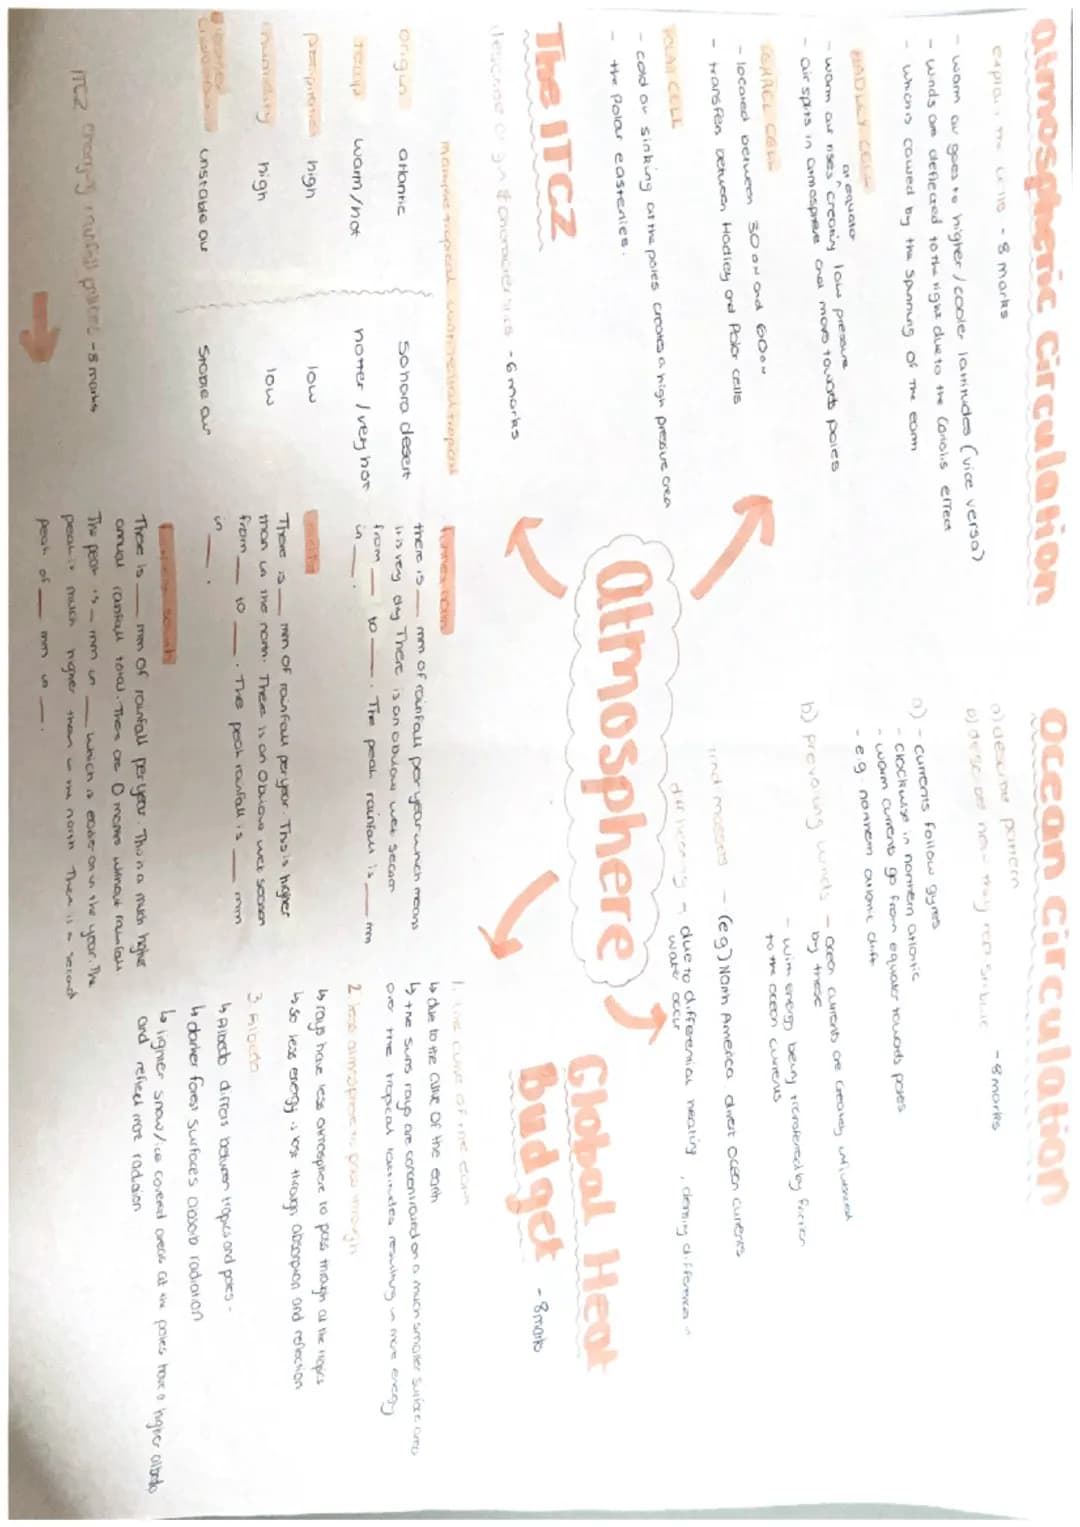 Atmospheric Circulation
explain the cells - 8 marks
- warm air goes to higher / cooler latitudes (vice versa)
- winds are deflected to the right due to the Coriolis effect
- which is caused by the spinning of the earth
HADLEY CELL
at equator
- warm air rises ^ creating low pressure
- air splits in atmosphere and moves towards poles
FERREL CELL
- located between 30°N and 60°N
- transfer between Hadley and Polar cells
POLAR CELL
- cold air sinking at the poles creates a high pressure area
- the Polar easterlies.
The ITCZ
describe origin & characteristics - 6 marks
maritime tropical continental tropical
origin atlantic Sahara desert
temp warm/hot hotter / very hot
precipitation high low
humidity high low
unstable air Stable air
ITCZ rainfall - 8 marks
Atmosphere
Ocean Circulation
a) describe pattern
b) describe how they - 8 marks
a) - currents follow gyres
- clockwise in northern atlantic
- warm currents go from equator towards poles
- e.g. northern atlantic drift
b) prevailing winds - ocean currents are greatly influenced
by these
- wind energy being transferred by friction
to the ocean currents
land masses - (eg) North America divert ocean currents
diff heating - due to differential heating, density differences in
water occur
Global Heat
Budget - 8 marks
1. The curve of the earth
↳ due to the curve of the earth
↳ the suns rays are concentrated on a much smaller surface area
over the tropical latitudes resulting in more energy
2. less atmosphere to pass through
↳ rays have less atmosphere to pass through at the tropics
↳ so less energy is lost through absorption and reflection
3. Albedo
↳ Albedo differs between tropics and poles -
↳ darker forest surfaces absorb radiation
↳ lighter snow/ice covered areas at the poles have a higher albedo
and reflect more radiation
Further north
there is __ mm of rainfall per year which means
it is very dry. There is an obvious wet season
from __ to __. The peak rainfall is __ mm
in __.
There is __ mm of rainfall per year. This is higher
than in the north. There is an obvious wet season
from __ to __. The peak rainfall is __ mm
in __.
south
There is __ mm of rainfall per year. This is a much higher
annual rainfall total. There are 0 months without rainfall
The peak is __ mm in __ which is earlier on in the year. The
peak is much higher than in the north. There is a second
peak of __ mm in __.